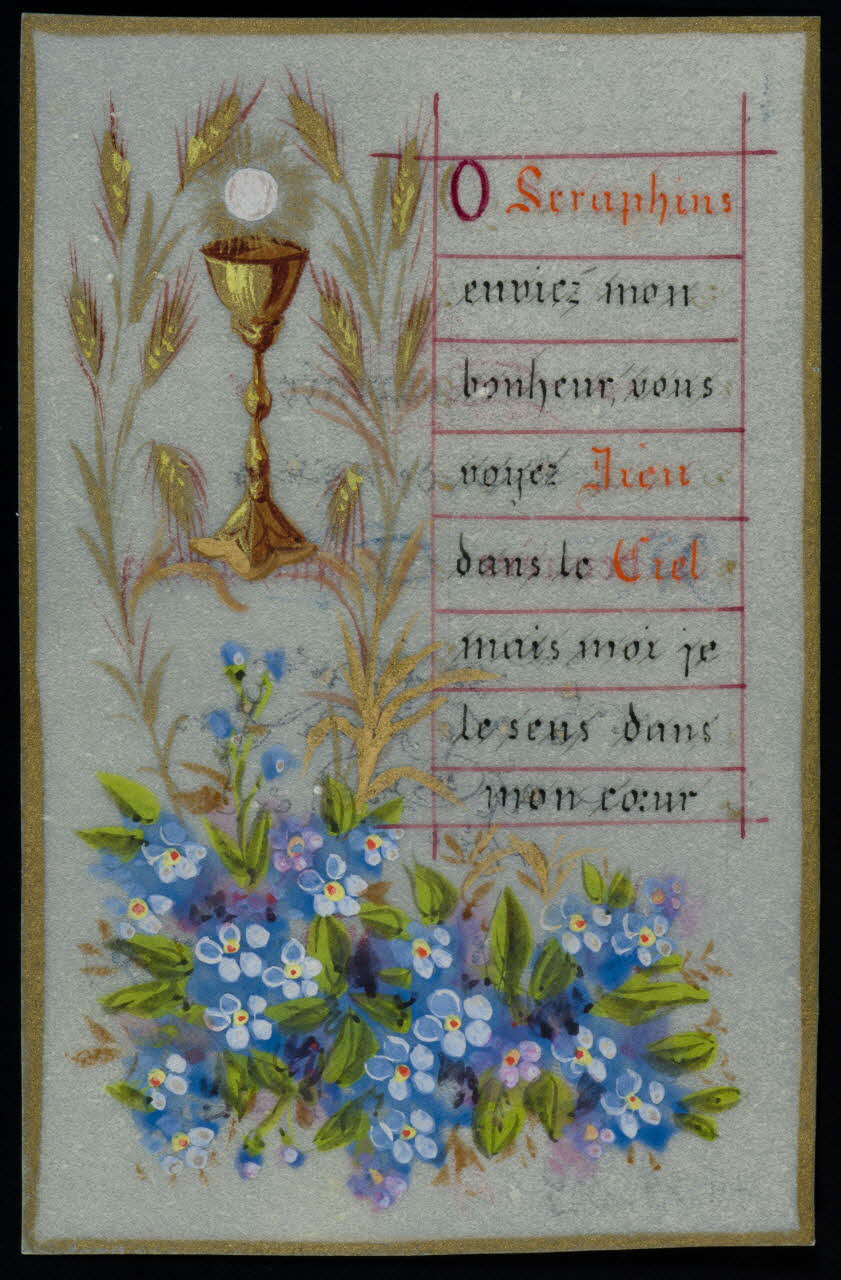 O Seraphins
enviez mon
bonheur, vous
voyez Dieu
dans le Ciel
mais moi je
le sens dans
mon cœur